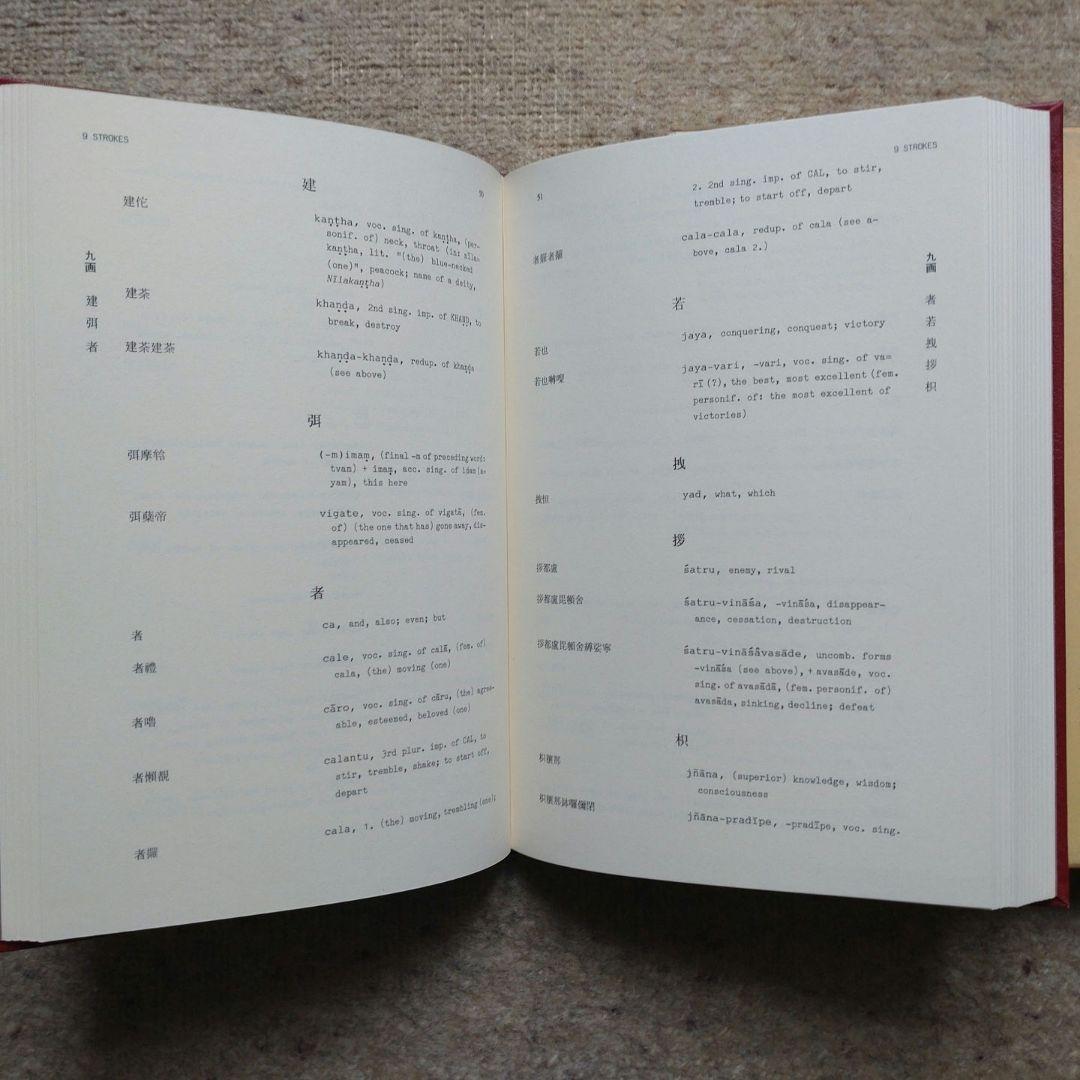 9 STROKES
建
50
建佗
kaṇṭha, voc. sing. of kaṇṭha, (per-
sonif. of) neck, throat (in: nīla-
kaṇṭha, lit. "(the) blue-necked
(one)", peacock; name of a deity,
Nīlakaṇṭha)
建荼
khaṇḍa, 2nd sing. imp. of KHAṆḌ, to
break, destroy
建荼建荼
khaṇḍa-khaṇḍa, redup. of khaṇḍa
(see above)
弭
弭摩
(-m)imaṃ, (final -m of preceding word:
tvan) + imaṃ, acc. sing. of idam (a-
yam), this here
弭蘖帝
vigate, voc. sing. of vigatā, (fem.
of) (the one that has) gone away, dis-
appeared, ceased
者
者
ca, and, also; even; but
者禮
cale, voc. sing. of calā, (fem. of)
cala, (the) moving (one)
者嚕
cāro, voc. sing. of cāru, (the) agree-
able, esteemed, beloved (one)
者懶覩
calantu, 3rd plur. imp. of CAL, to
stir, tremble, shake; to start off,
depart
者攞
cala, 1. (the) moving, trembling (one);
九画
建
弭
者
9 STROKES
51
2. 2nd sing. imp. of CAL, to stir,
tremble; to start off, depart
者攞者攞
cala-cala, redup. of cala (see a-
bove, cala 2.)
若
若也
jaya, conquering, conquest; victory
若也
jaya-vari, -vari, voc. sing. of va-
rī (?), the best, most excellent (fem.
personif. of: the most excellent of
victories)
拽
拽怛
yad, what, which
拶
拶都盧
śatru, enemy, rival
拶都盧毘頓舍
śatru-vināśa, -vināśa, disappear-
ance, cessation, destruction
拶都盧毘頓舍縛娑寧
śatru-vināśâvasāde, uncomb. forms
-vināśa (see above), + avasāde, voc.
sing. of avasādā, (fem. personif. of)
avasāda, sinking, decline; defeat
枳
枳穰那
jñāna, (superior) knowledge, wisdom;
consciousness
枳穰那鉢囉儞閉
jñāna-pradīpe, -pradīpe, voc. sing.
九画
者
若
拽
拶
枳